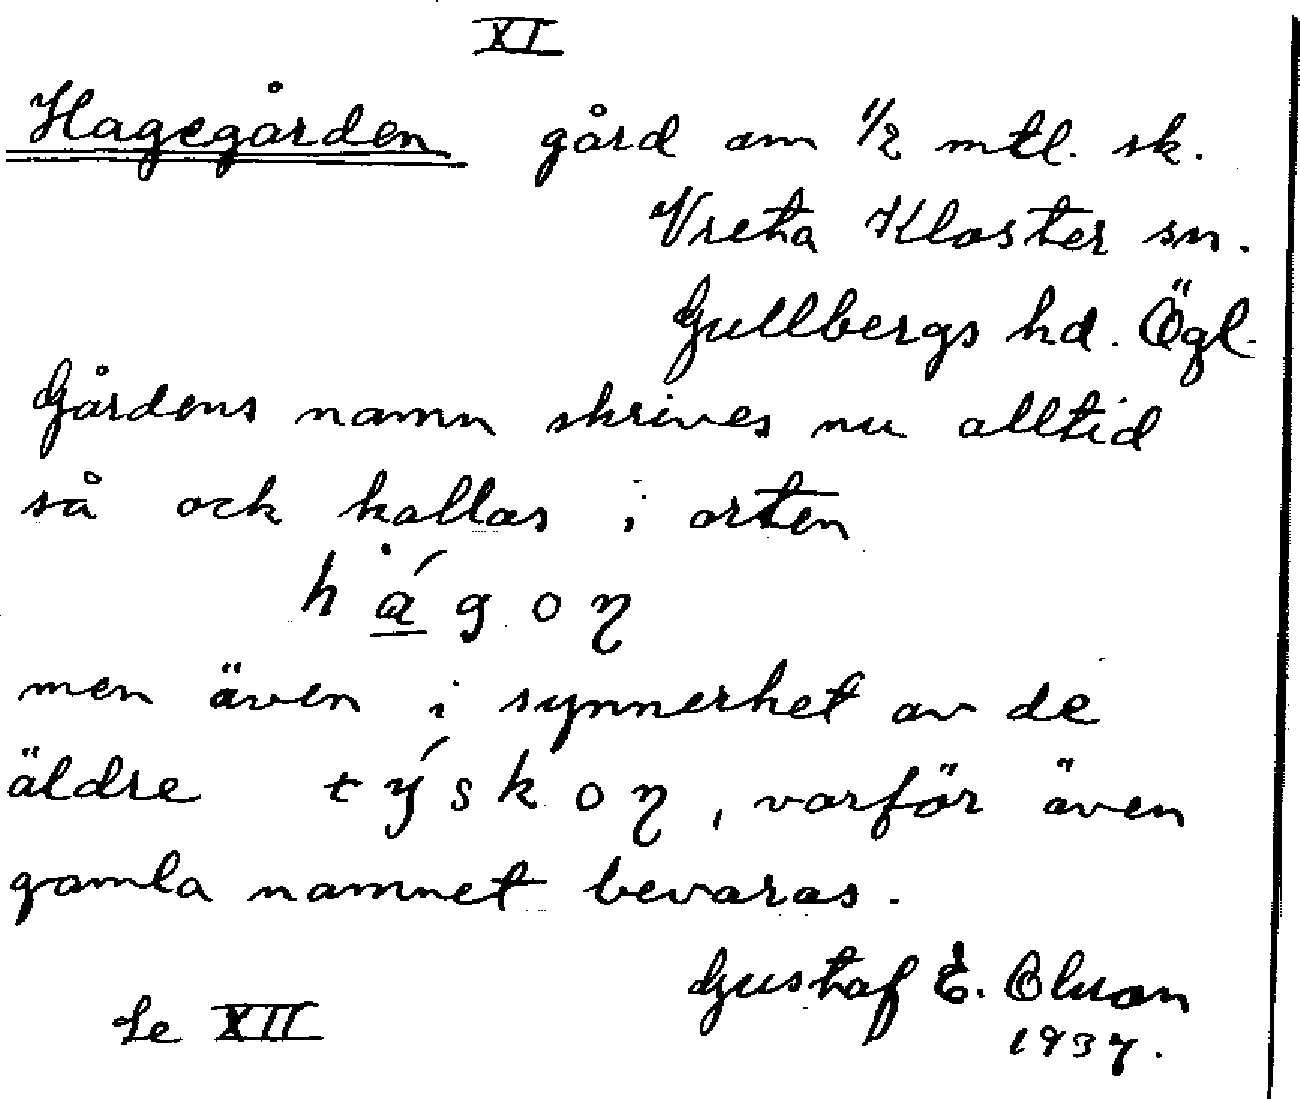 XI
Hagegården gård om 1/2 mtl. sk.
Vreta Kloster sn.
Gullbergs hd. Ögl.
Gårdens namn skrives nu alltid
så och kallas i orten
hágoŋ
men även i synnerhet av de
äldre týskoŋ, varför även
gamla namnet bevaras.
Gustaf E. Olson
Se XII
1937.